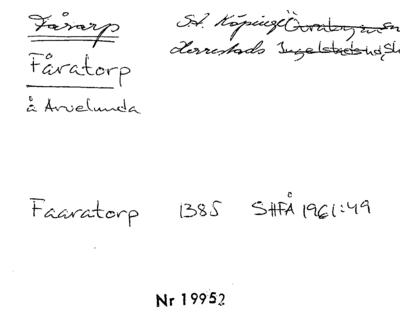 Fårarp St. Köpinge
Herrestads Ingelstads hd, Sk
Fåratorp
å Arvelunda
Faaratorp 1385 SHFÅ 1961:49
Nr 19952